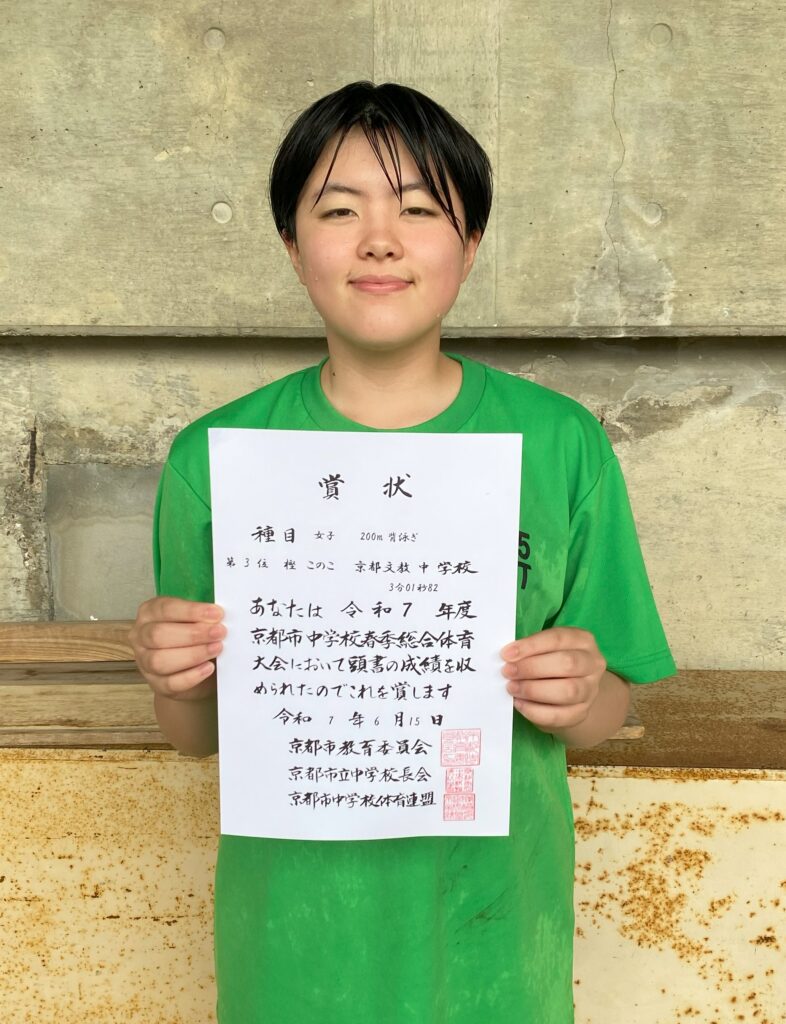 賞状
種目 女子 200m 背泳ぎ
第3位 樫 このこ 京都文教中学校
3分01秒82
あなたは 令和7年度
京都市中学校春季総合体育
大会において頭書の成績を収
められたのでこれを賞します
令和7年6月15日
京都市教育委員会
京都市立中学校長会
京都市中学校体育連盟
5
T